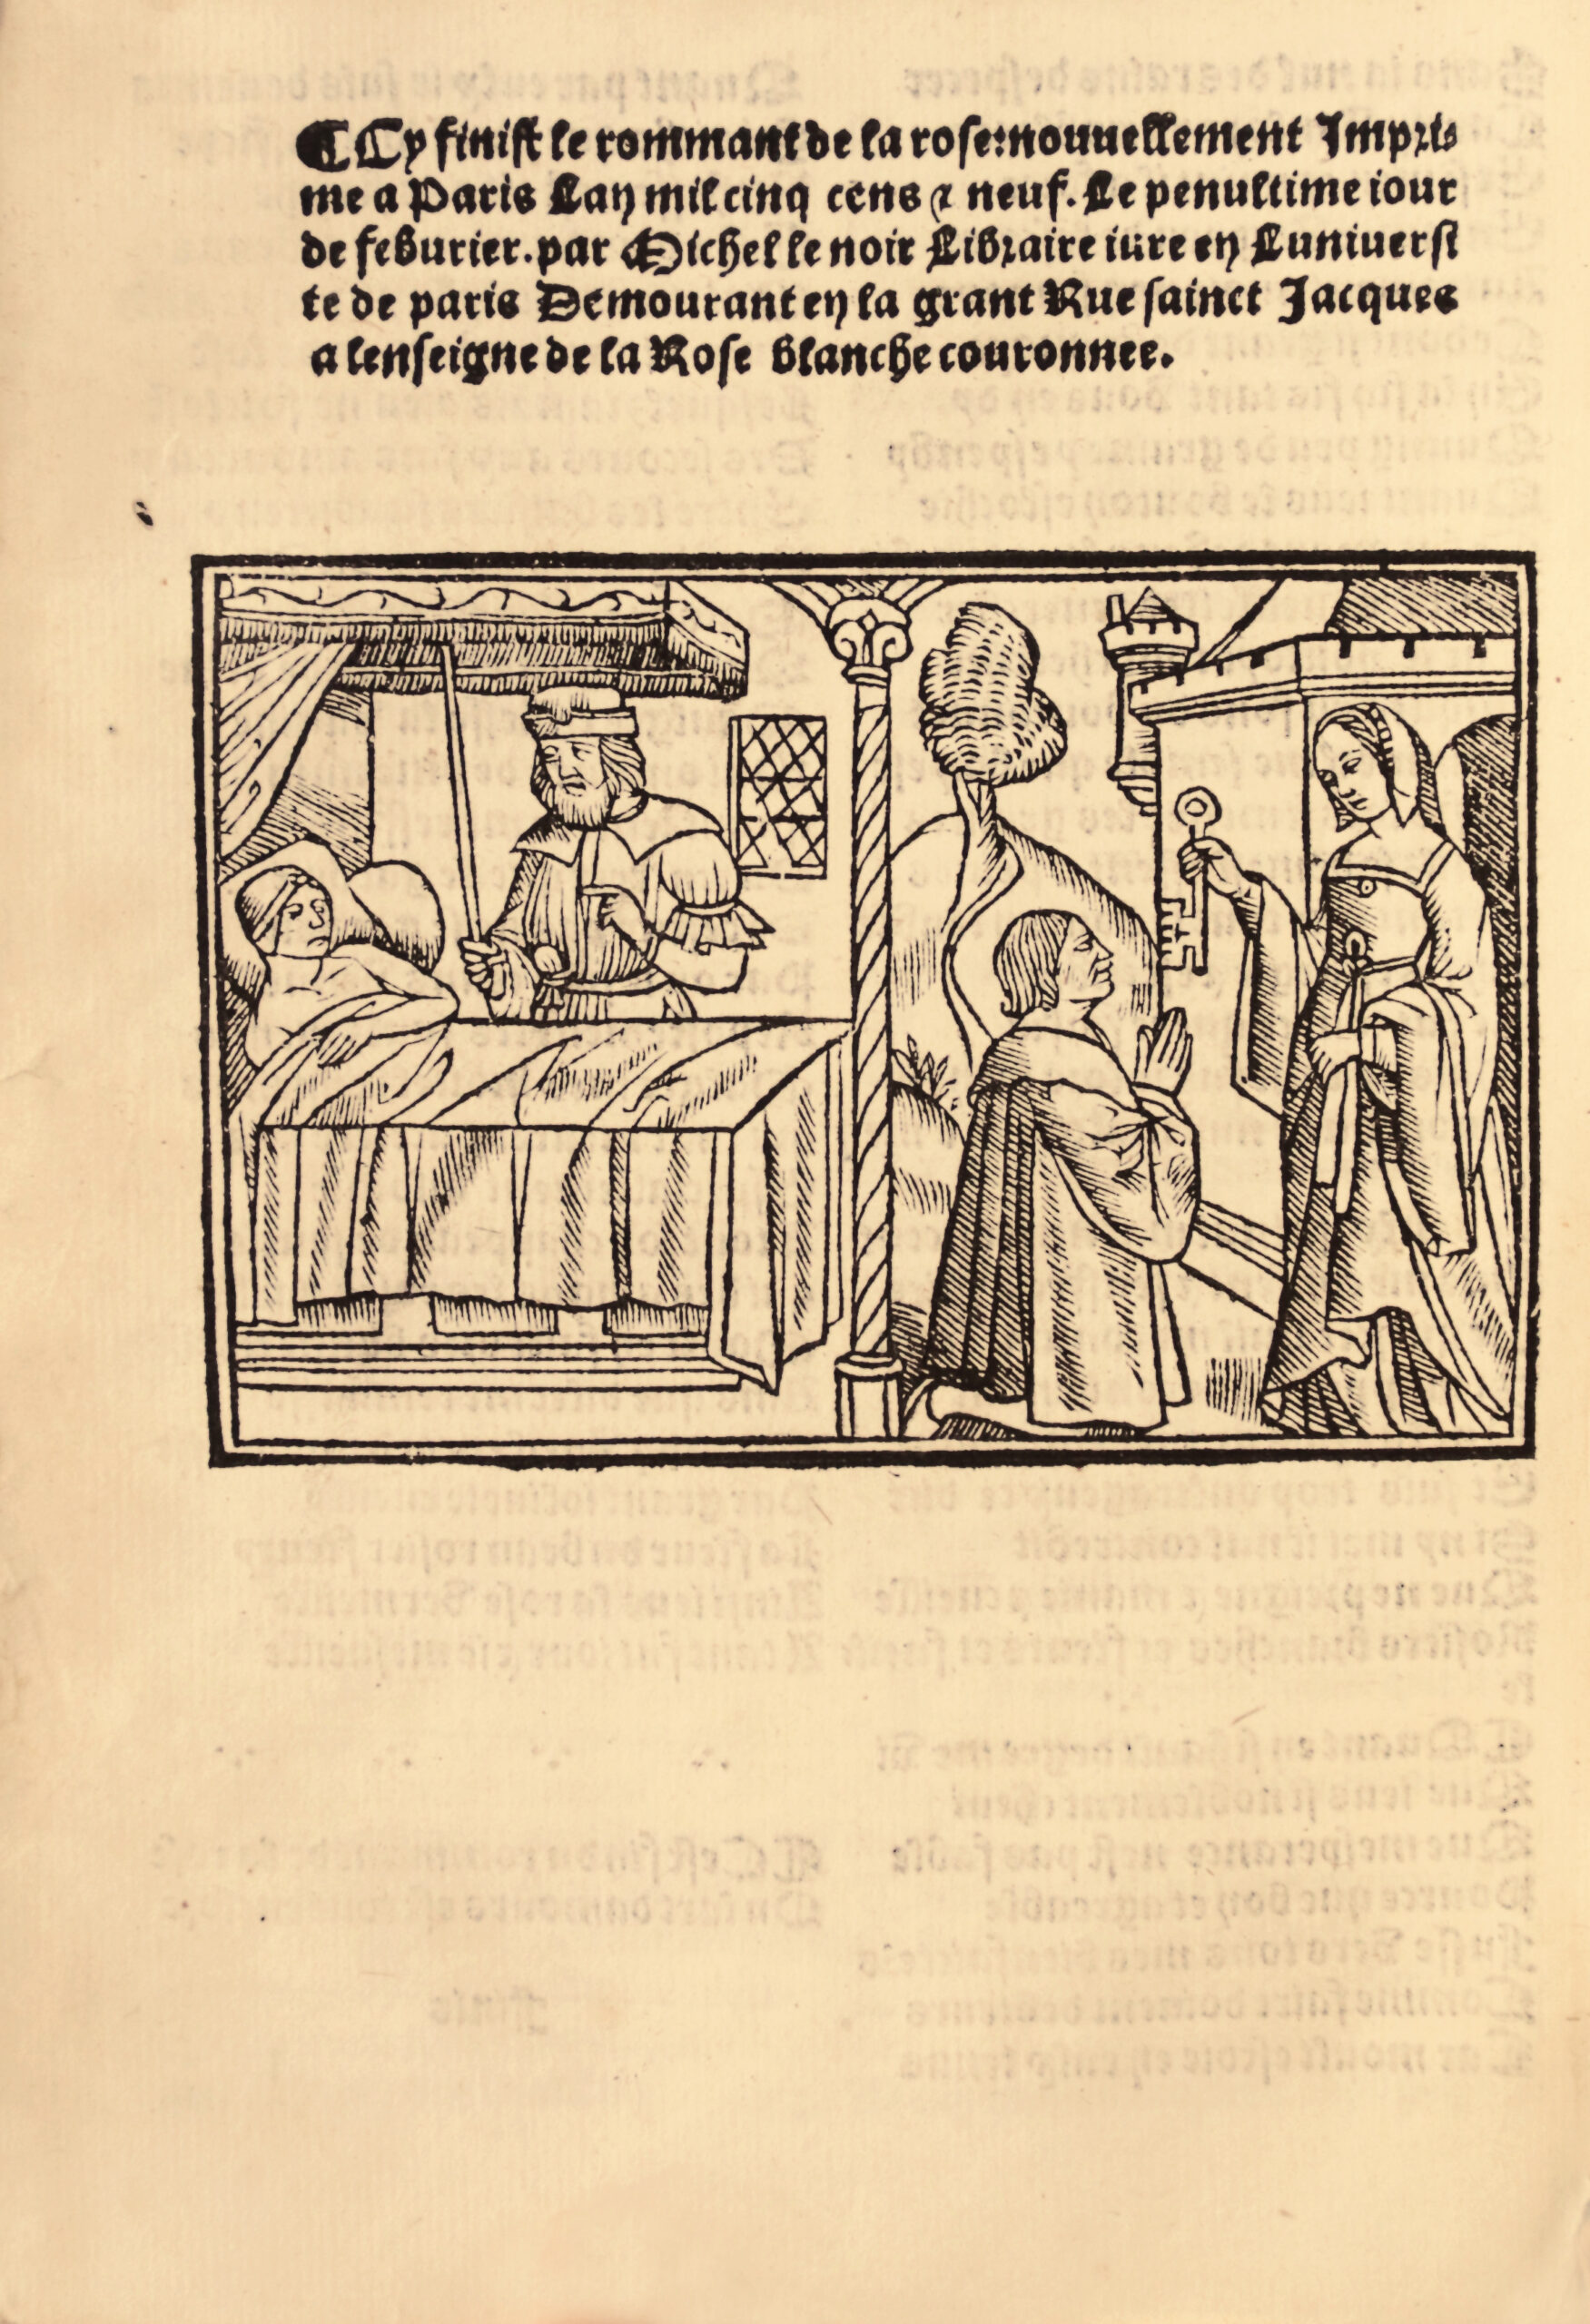 ❡Cy finist le rommant de la rose: nouuellement Impris
me a Paris Lan mil cinq cens ⁊ neuf. Le penultime iour
de feburier. par Michel le noir Libraire iure en Luniuersi
te de paris Demourant en la grant Rue sainct Jacques
a lenseigne de la Rose blanche couronnee.